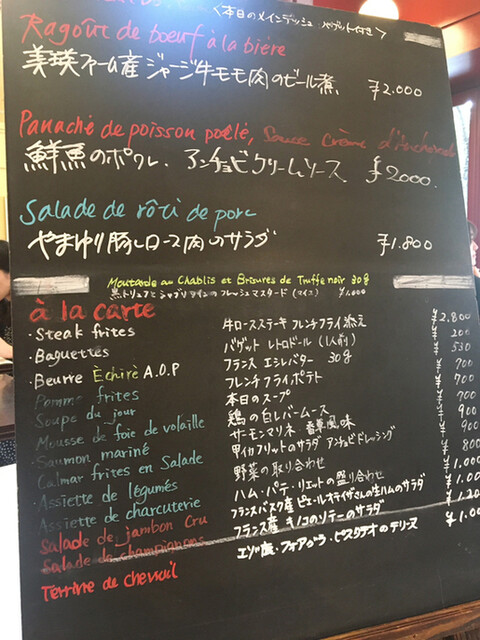 <本日のメインディッシュ バゲット付き>
Ragoût de boeuf à la bière
美瑛ファーム産ジャージー牛モモ肉のビール煮 ¥2.000
Panaché de poisson poêlé, Sauce crème d'Anchois
鮮魚のポワレ、アンチョビクリームソース ¥2000.
Salade de rôti de porc
やまゆり豚ロース肉のサラダ ¥1.800
Moutarde au Chablis et Brisures de Truffe noir 30g
黒トリュフとシャブリワインのフレッシュマスタード ¥1.000
à la carte
・Steak frites 牛ロースステーキ フレンチフライ添え ¥2.800
・Baguettes バゲット レトロドール (1人前) ¥200
・Beurre Èchiré A.O.P フランス エシレバター 30g ¥530
Pomme frites フレンチフライポテト ¥700
Soupe du jour 本日のスープ ¥700
Mousse de foie de volaille 鶏の白レバームース ¥700
Saumon mariné サーモンマリネ 香草風味 ¥900
Calmar frites en Salade 甲イカフリットのサラダ アンチョビドレッシング ¥900
Assiette de légumes 野菜の取り合わせ ¥800
Assiette de charcuterie ハム・パテ・リエットの盛り合わせ ¥1.000
Salade de jambon Cru フランスバスク産ピエールオテイザさんの生ハムのサラダ ¥1.000
Salade de champignons フランス産キノコのソテーのサラダ ¥1.20
Terrine de chevreuil エゾ鹿・フォアグラ・ピスタチオのテリーヌ ¥1.00